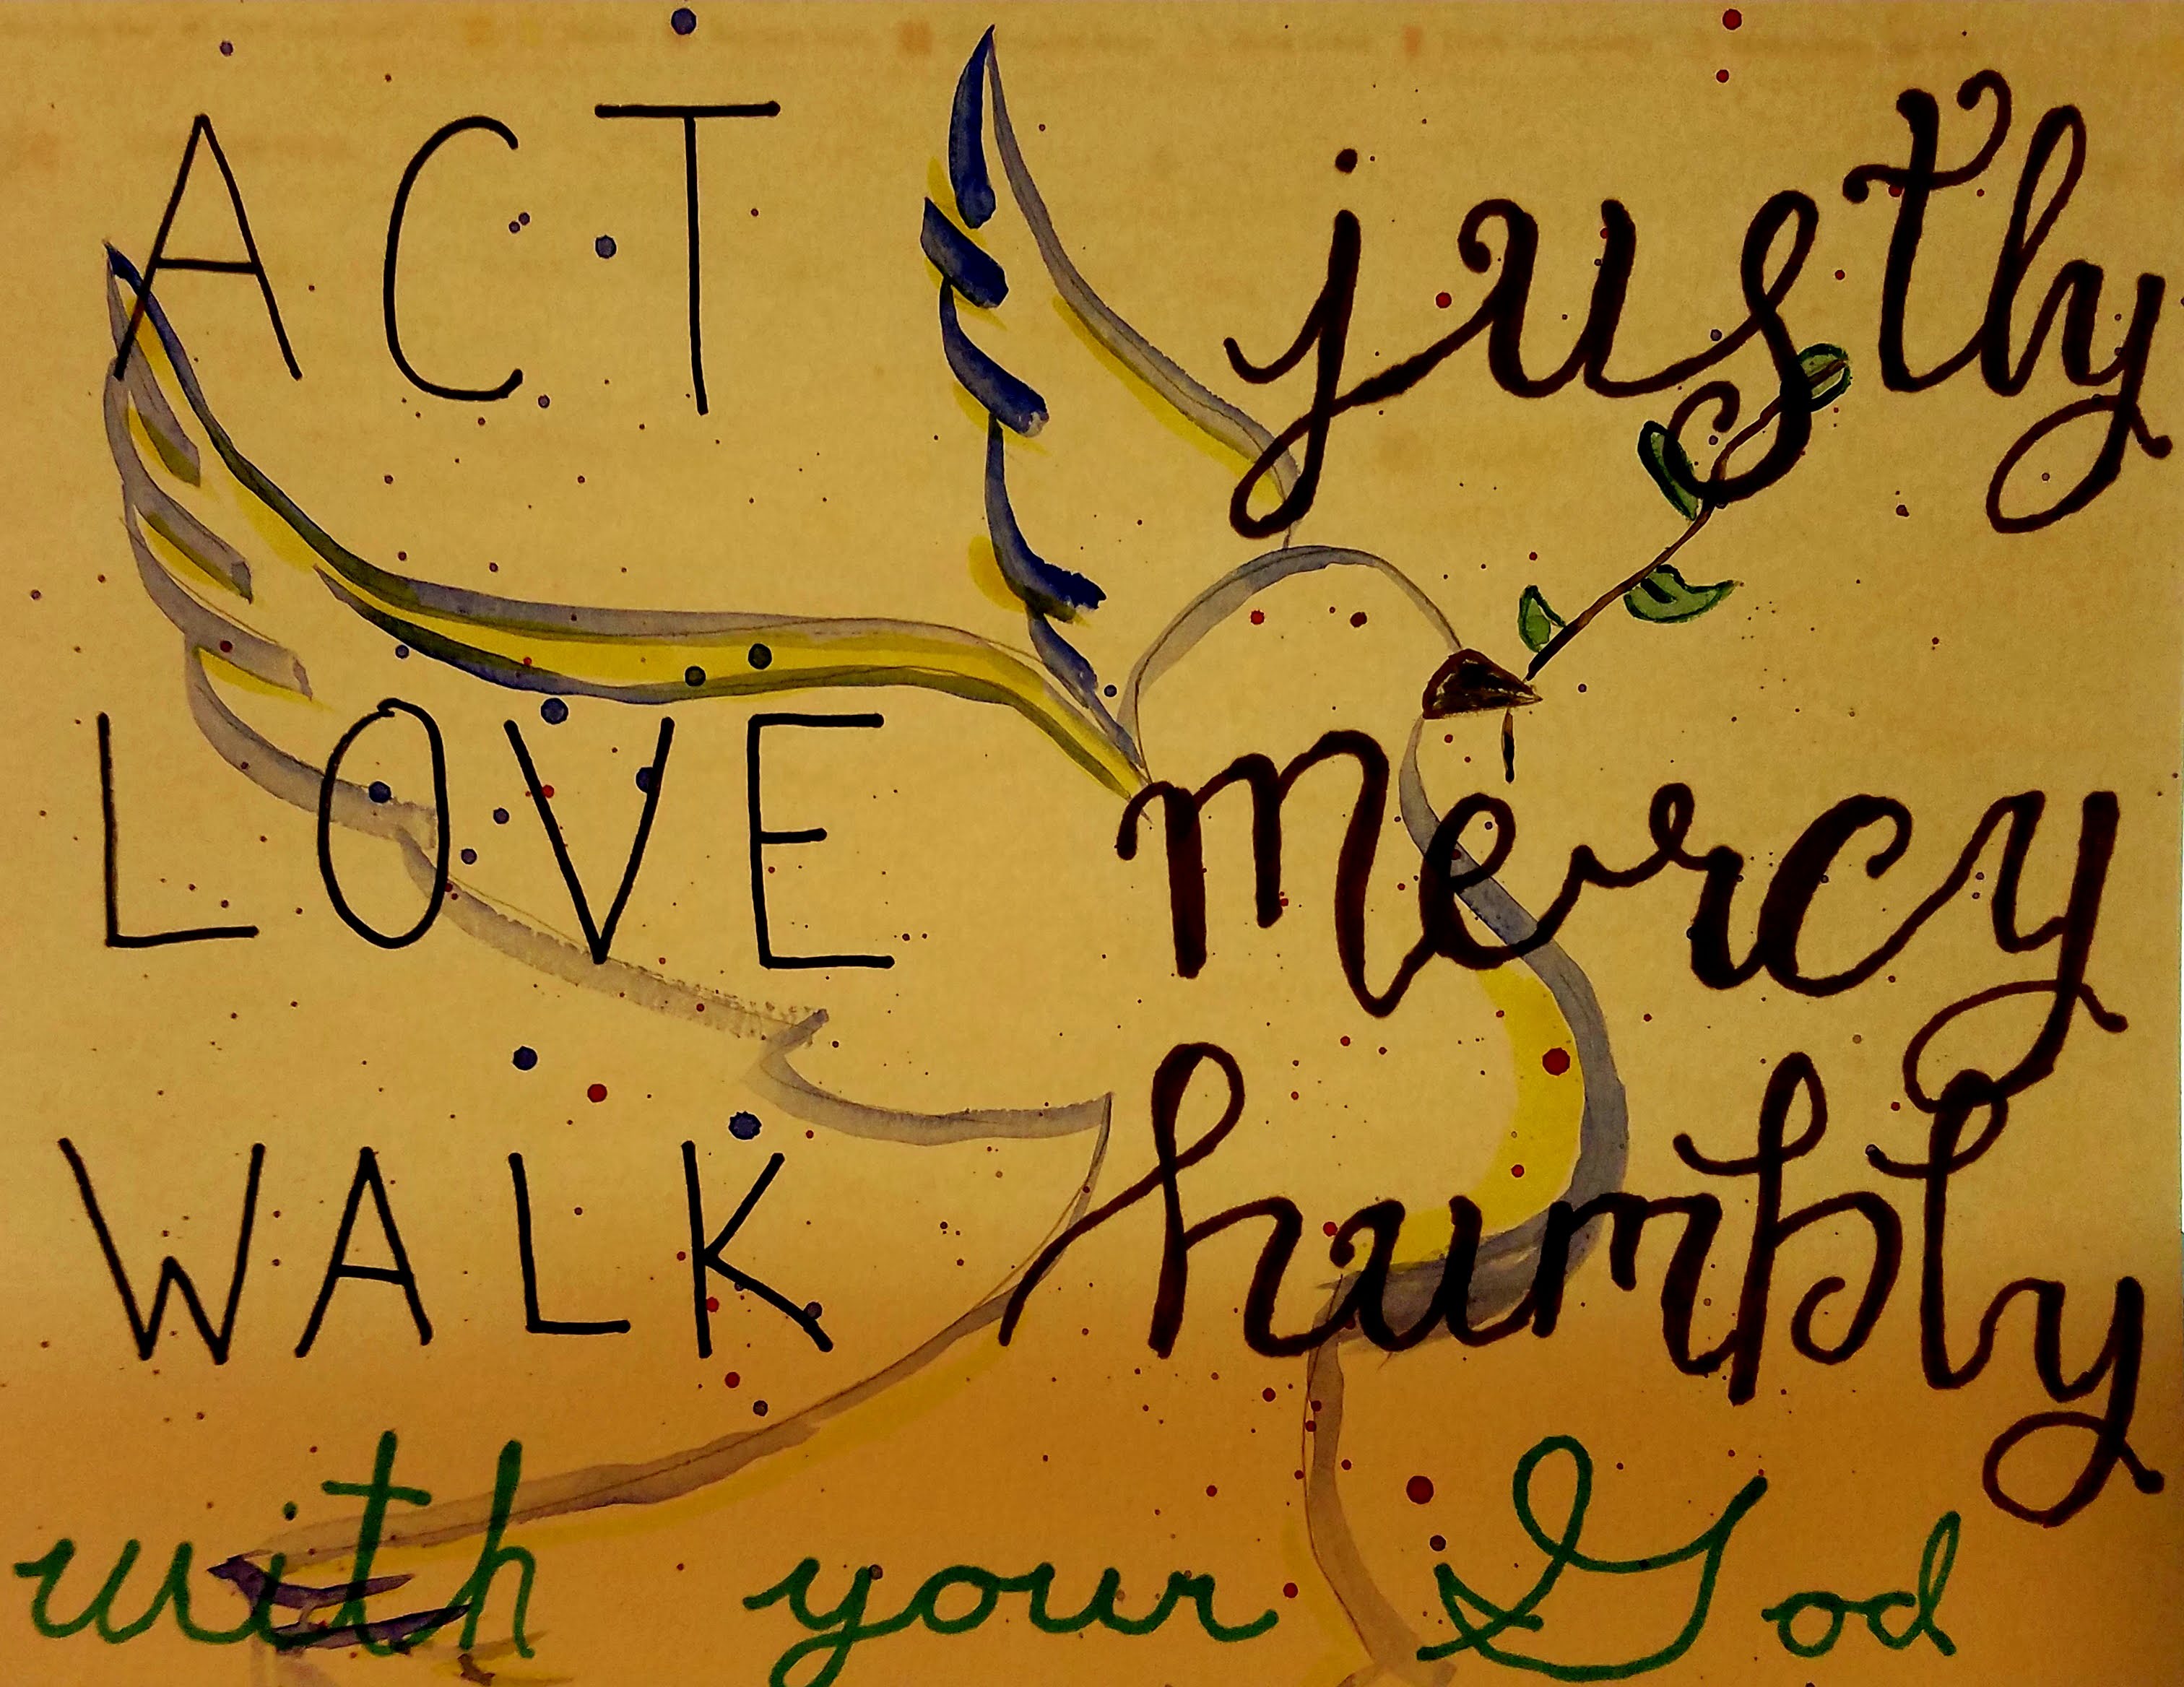 ACT justly
LOVE mercy
WALK humbly
with your God